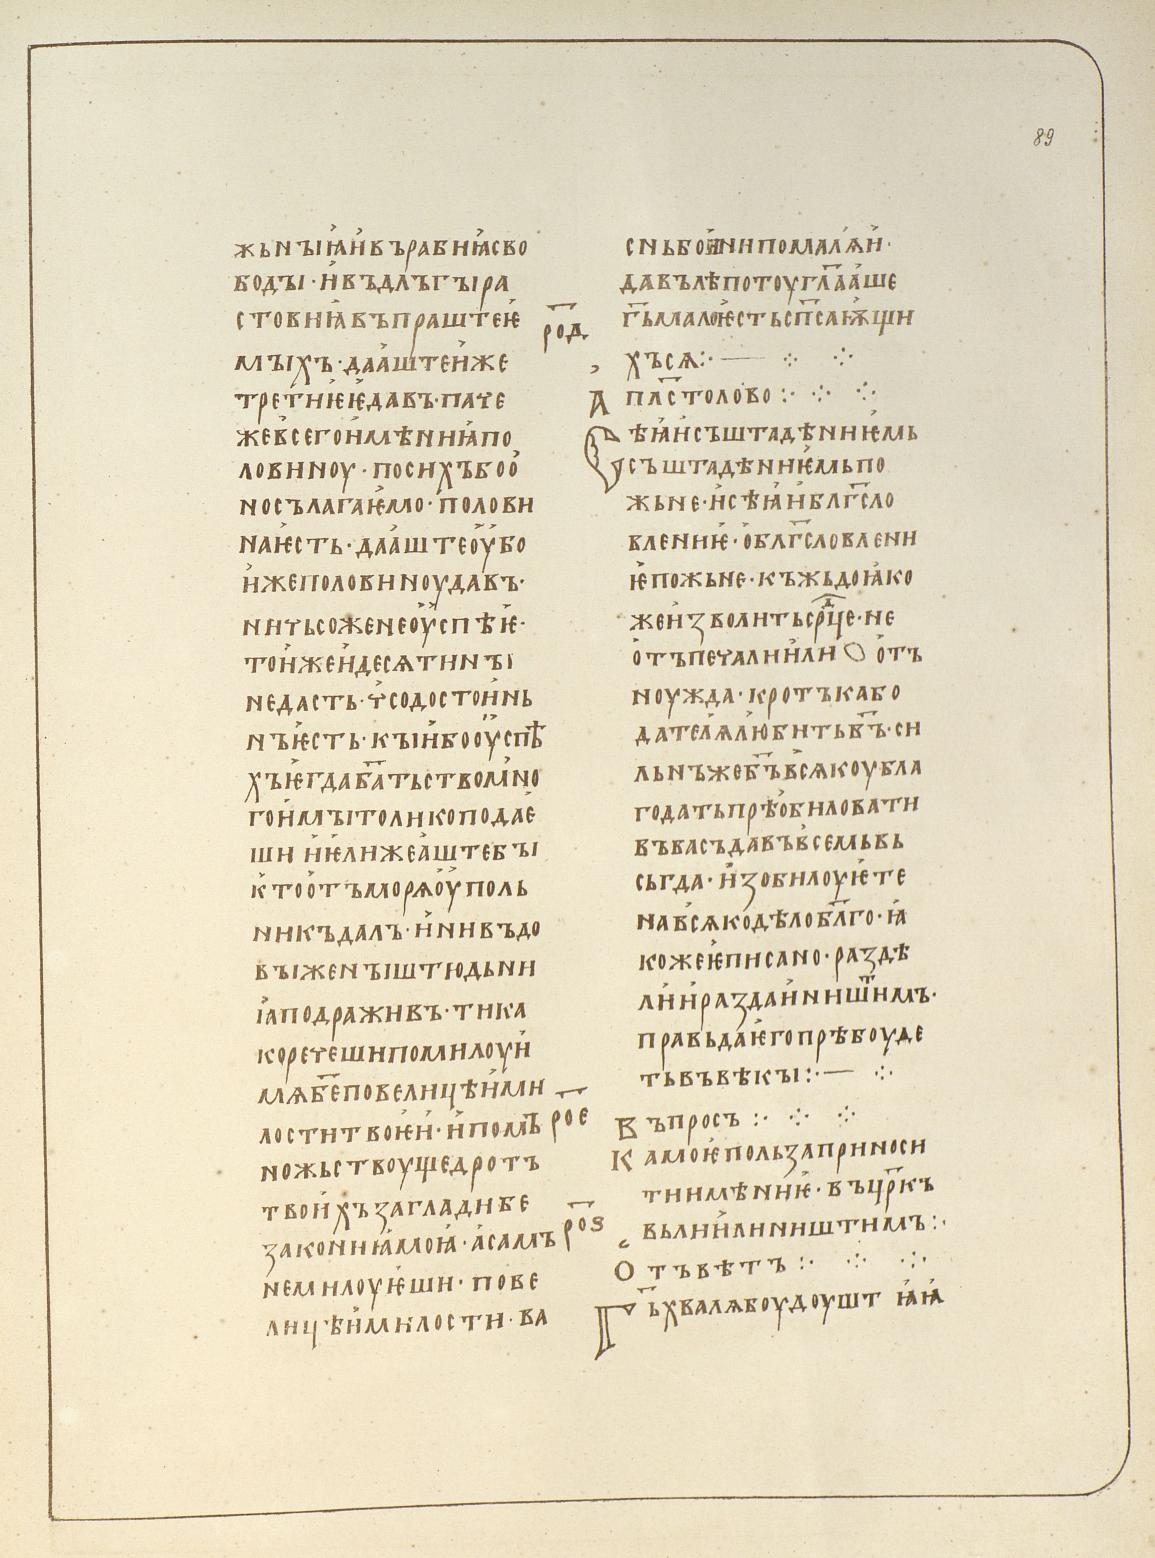 89
жьнꙑꙗ и въ рабиꙗ сво
бодꙑ · и въ дългꙑ ра
стовиꙗ въпраштеѥ
мꙑхъ · да аште иже
третиѥѥ давъ · паче
же всего имѣниꙗ по
ловиноу · по сихъ бо о
но сълагаѥмо · полови
на ѥсть · да аште оубо
иже половиноу давъ ·
ничьсоже не оуспѣѥ ·
то иже и десѧтинꙑ
не дасть · чсо достоинь
нъ ѥсть · кꙑи бо оуспѣ
хъ ѥгда бг҃атьство мно
го имꙑ толико подае
ши и ѥлиже аште бꙑ
кто отъ морѧ оу поль
никъ далъ · и ни въдо
вꙑ женꙑ штюдьни
ꙗ подраживъ · ти ка
ко речеши помилоуи
мѧ бж҃е по велицѣи ми
лости твоѥи · и по мъ
ножьствоу щедротъ
твоихъ заглади бе
закониꙗ моꙗ · а самъ
не милоуѥши · по ве
лицѣи милости · ва
род
рое
роз
сни бо ини помалѧи ·
да въ лѣпотоу гл҃ааше
г҃ь мало ѥсть сп҃саѭщи
хъсѧ :· — ⁘ ⁘
Апл҃столово :· ⁘ ⁘
Сѣꙗи съштадѣниѥмь
съштадѣниѥмь по
жьне · и сѣꙗи блг҃сло
влениѥ · о блг҃словлени
ѥ пожьне · къжьдо ꙗко
же изволить ср҃дце · не
отъ печали или отъ
ноужда · кротъка бо
дателѧ любить б҃ъ · си
льнъ же б҃ъ всѧкоу бла
годать прѣобиловати
въ васъ да въ всемь вь
сьгда · изобилоуѥте
на всѧко дѣло бл҃го · ꙗ
коже ѥ писано · раздѣ
ли и раздаи ништиимъ ·
правьда ѥго прѣбоуде
ть въ вѣкꙑ :· — ⁘
Въпросъ :· ⁘ ⁘
Камо ѥ польза приноси
ти имѣниѥ · въ цр҃къ
вьли или ништимъ :·
Отъвѣтъ :· ⁘ ⁘
Г҃ь хвалѧ боудоушт ꙗꙗ